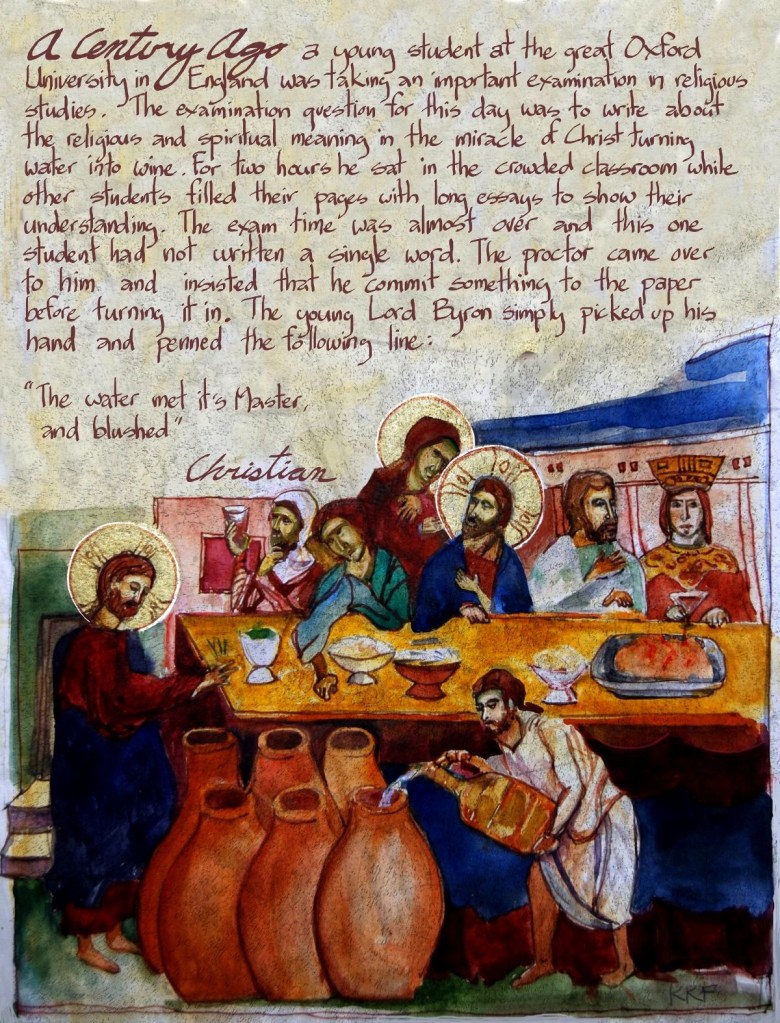 A Century Ago a young student at the great Oxford
University in England was taking an important examination in religious
studies. The examination question for this day was to write about
the religious and spiritual meaning in the miracle of Christ turning
water into wine. For two hours he sat in the crowded classroom while
other students filled their pages with long essays to show their
understanding. The exam time was almost over and this one
student had not written a single word. The proctor came over
to him and insisted that he commit something to the paper
before turning it in. The young Lord Byron simply picked up his
hand and penned the following line:
"The water met it's Master,
and blushed"
Christian
KKF